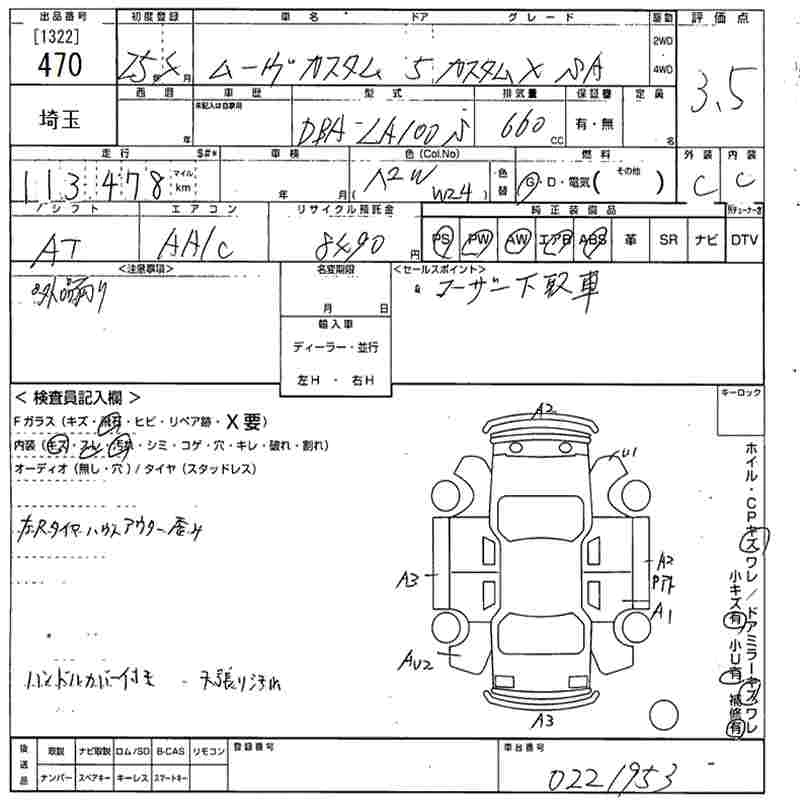 出品番号 初度登録 車名 ドア グレード 駆動 評価点
[1322]
470 25年 月 ムーヴカスタム 5 カスタムX SA 2WD 4WD 3.5
埼玉 西暦 年 車歴 未記入は自家用 型式 排気量 保証書 定員
DBA-LA100S 660 cc 有・無 名
走行 $#* 車検 色(Col.No) 燃料 外装 内装
113478 マイル km 年 月 ( W24 ) 色替 G・D・電気( その他 ) C C
シフト エアコン リサイクル預託金 純正装備品
AT AA/C 8490 円 PS PW AW エアB ABS 革 SR ナビ DTV
<注意事項> 名変期限 <セールスポイント>
月 日 ユーザー下取車
輸入車
ディーラー・並行
左H ・ 右H
< 検査員記入欄 > キーロック
Fガラス(キズ・飛石・ヒビ・リペア跡・X要)
内装(キズ・スレ・汚れ・シミ・コゲ・穴・キレ・破れ・割れ)
オーディオ(無し・穴)/タイヤ(スタッドレス)
左Rタイヤハウスアウター歪み
ハンドルカバー付き 天張り汚れ
A2
U1
A3
A2
A1
AU2
A3
ホイル・CPキズワレ/ドアミラーキズワレ
小キズ有 小U有 補修有
後送品 取説 ナビ取説 ロム/SD B-CAS リモコン 登録番号 車台番号
ナンバー スペアキー キーレス スマートキー 0221953